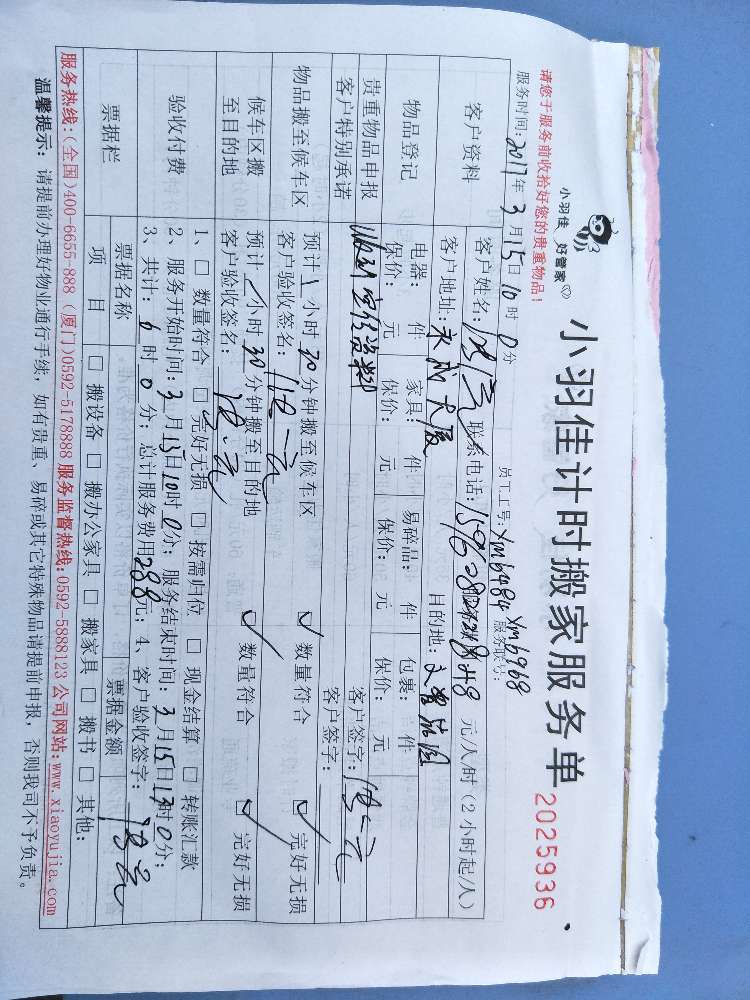 小羽佳 好管家
小羽佳计时搬家服务单
2025936
请您于服务前收拾好您的贵重物品！
服务时间：2017年3月15日10时0分 员工工号：xm6484 xm6968
服务联号：
客户资料 客户姓名： 联系电话： 元/人/时（2小时起/人）
客户地址： 大厦 目的地：
物品登记 电器： 件 家具： 件 易碎品： 件 包裹： 件
保价： 元 保价： 元 保价： 元 保价： 元
贵重物品申报 客户签字：
客户特别承诺 客户签字：
物品搬至候车区 预计1小时30分钟搬至候车区 数量符合 完好无损
客户验收签名：
候车区搬至目的地 预计1小时30分钟搬至目的地 数量符合 完好无损
客户验收签名：
验收付费 1、□ 数量符合 □ 完好无损 □ 按需归位 □ 现金结算 □ 转账汇款
2、服务开始时间：3月15日10时0分；服务结束时间：3月15日13时0分；
3、共计：6时0分；总计服务费用288元；4、客户验收签字：
票据栏 票据名称 票据金额
项目 □ 搬设备 □ 搬办公家具 □ 搬家具 □ 搬书 □ 其他：
服务热线：(全国)400-6655-888 (厦门)0592-5178888 服务监督热线：0592-5888123 公司网站：www.xiaoyujia.com
温馨提示：请提前办理好物业通行手续，如有贵重、易碎或其它特殊物品请提前申报，否则我司不予负责。